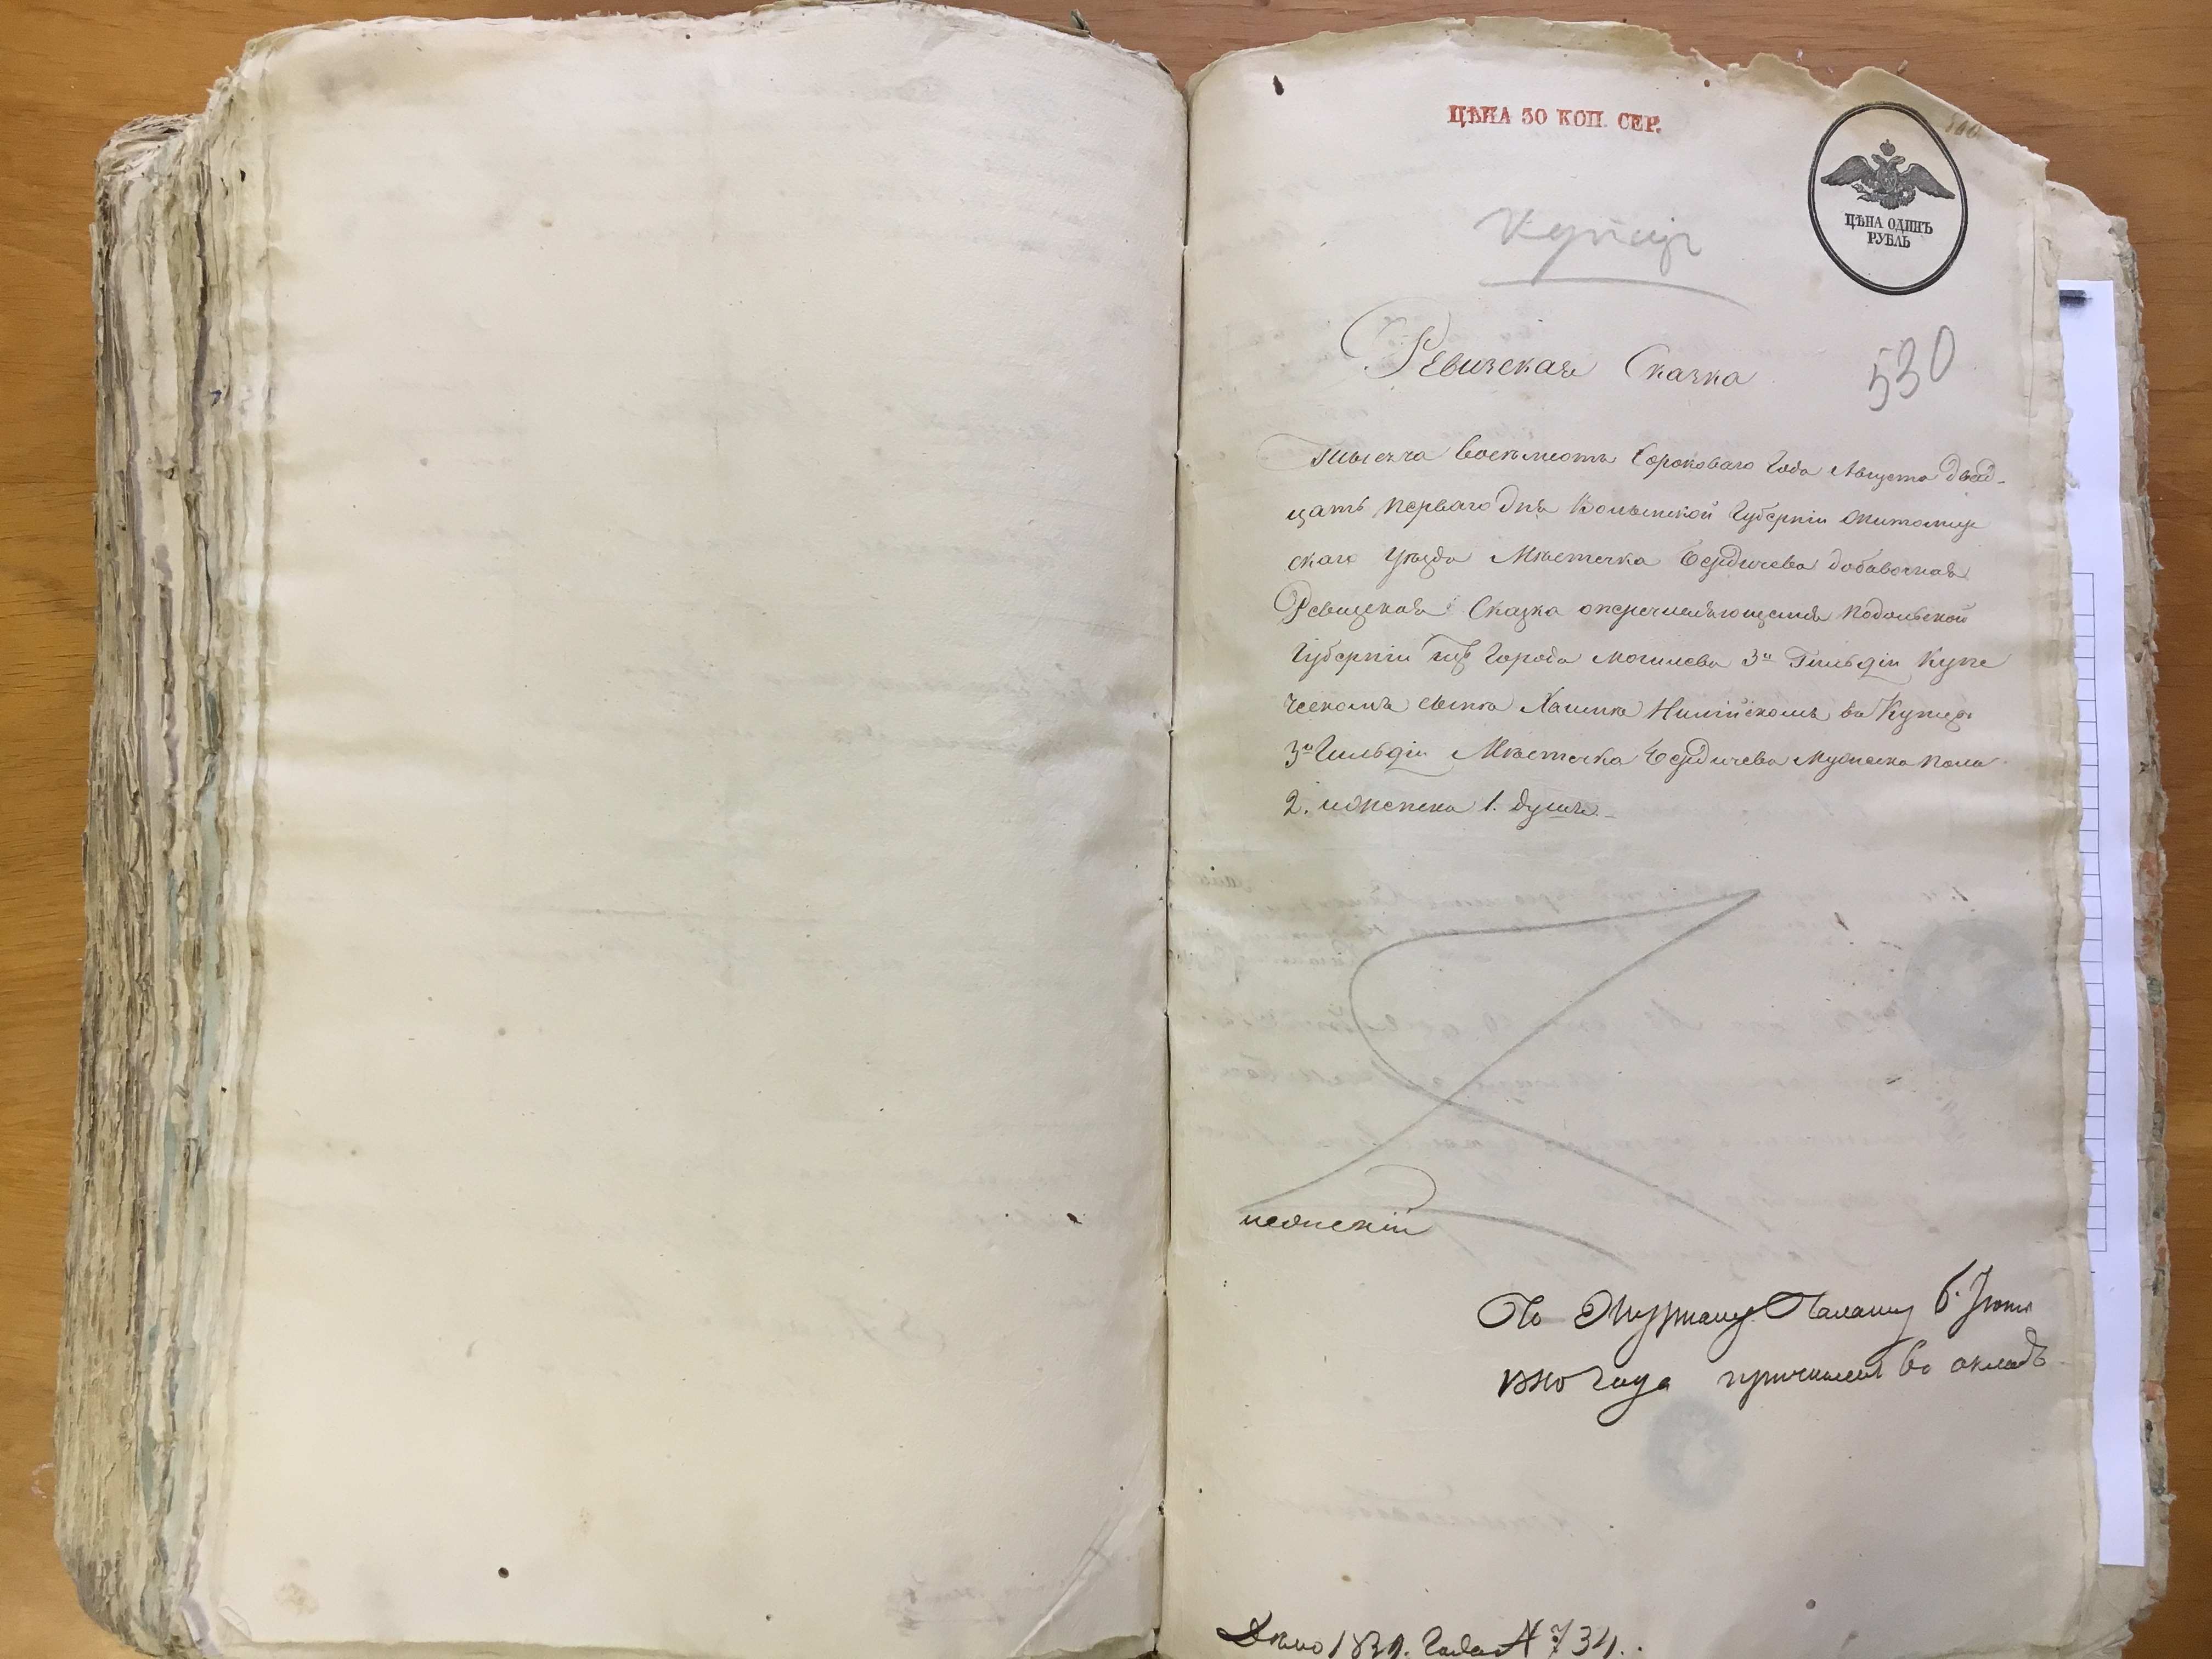 ЦѢНА 30 КОП. СЕР.
ЦѢНА ОДИНЪ
РУБЛЬ
купцы
530
Ревизская Сказка
Тысяча Восемьсотъ Сороковаго Года Августа двад-
цать перваго дня Волынской Губерніи Житомир
скаго Уѣзда Мѣстечка Бердичева добавочная
Ревизская Сказка о перечисляющемся Подольской
Губерніи изъ Города Могилева 3й Гильдіи Купе
ческомъ сынѣ Хаимѣ въ Купцы
3й Гильдіи Мѣстечка Бердичева Мужеска пола
2. и женска 1. душѣ.
По Журналу Палаты 6. Іюня
1840 Года причислен въ окладъ
Дѣло 1839. Года № 734.